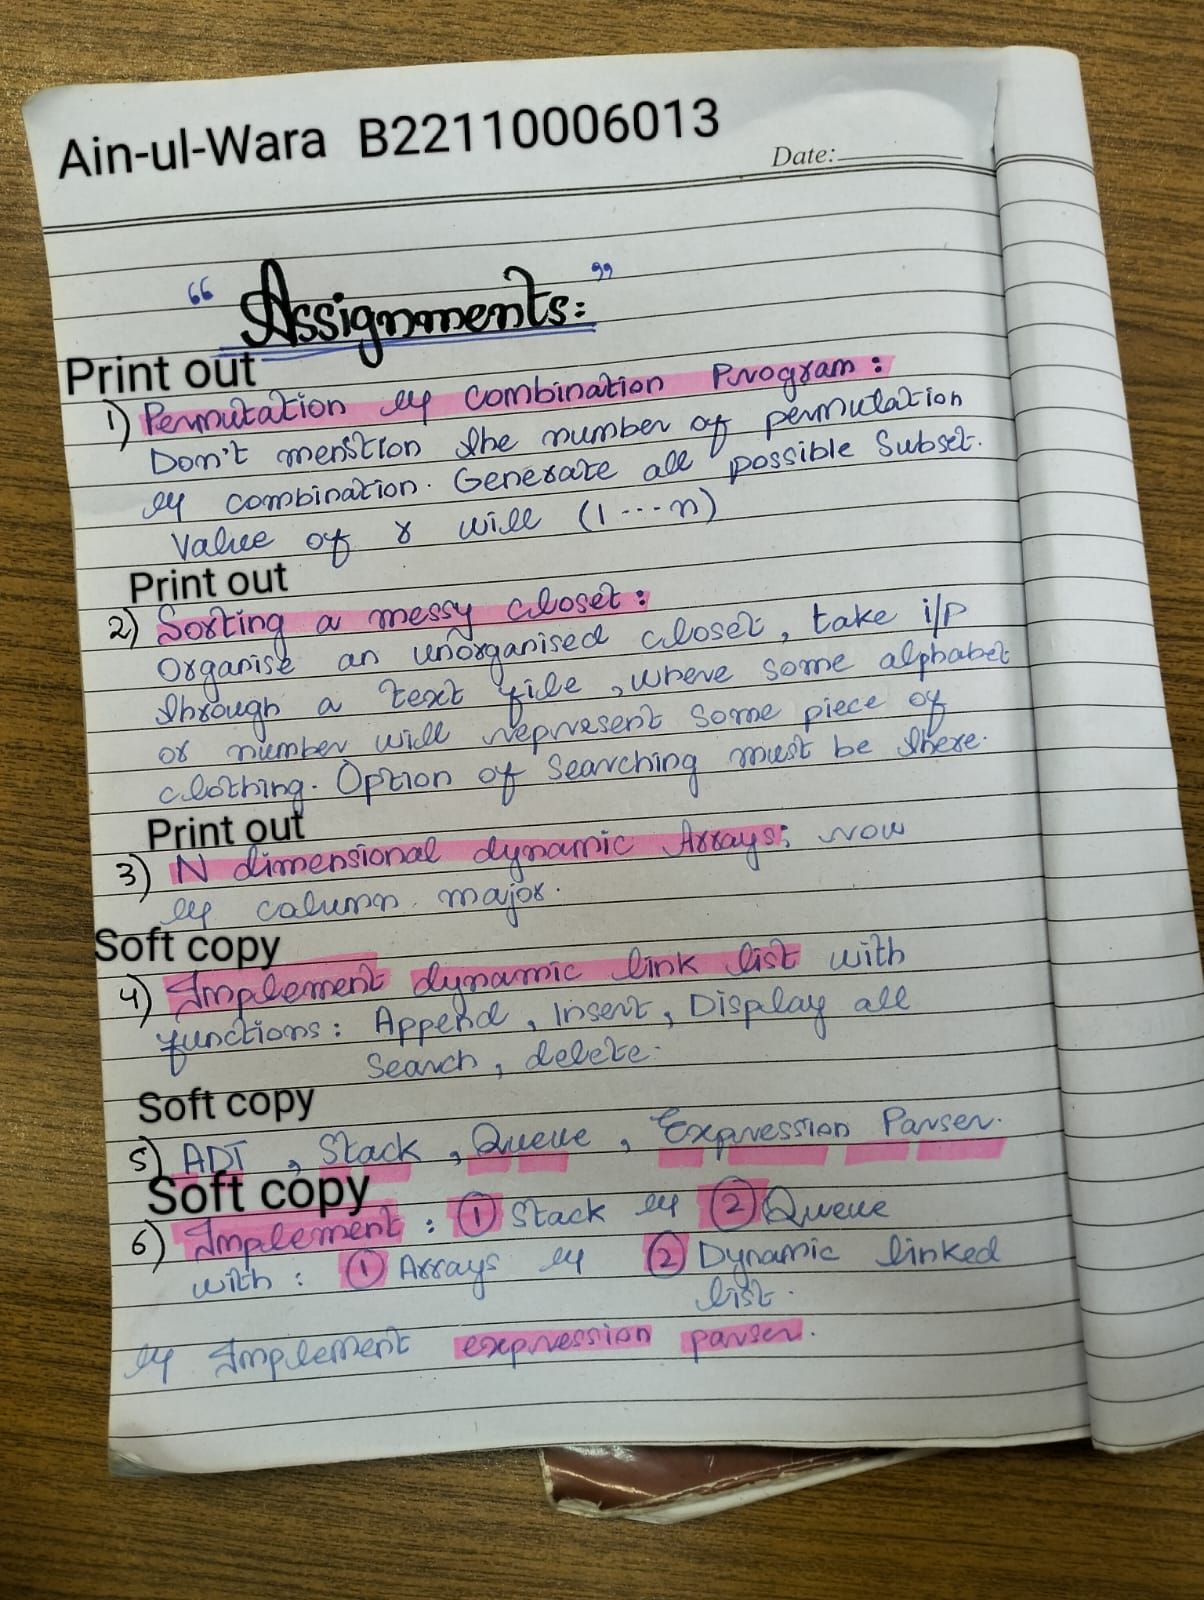 Ain-ul-Wara B22110006013
Date:
"Assignments:"
Print out
1) Permutation & Combination Program:
Don't menstion the number of permutation
& combination. Generate all possible Subset.
Value of r will (1---n)
Print out
2) Sorting a messy closet:
Organise an unorganised closet, take i/p
through a text file, where some alphabet
or number will represent some piece of
clothing. Option of Searching must be there.
Print out
3) N dimensional dynamic Arrays; row
& column major.
Soft copy
4) Implement dynamic link list with
functions: Append, Insert, Display all
Search, delete.
Soft copy
5) ADT, Stack, Queue, Expression Parser.
Soft copy
6) Implement: ① Stack & ② Queue
with: ① Arrays & ② Dynamic linked
list.
& Implement expression parser.